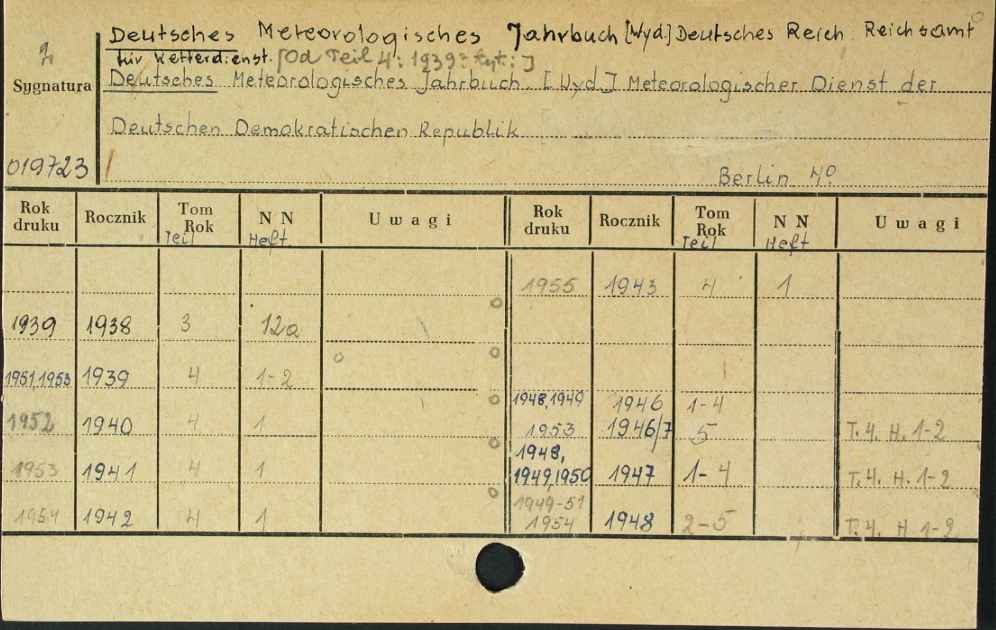 Deutsches Meteorologisches Jahrbuch [Wyd.] Deutsches Reich. Reichsamt
für Wetterdienst. [Od Teil 4: 1939: tyt.:]
Sygnatura
Deutsches Meteorologisches Jahrbuch. [Wyd.] Meteorologischer Dienst der
Deutschen Demokratischen Republik
019723
Berlin 4°
Rok druku Rocznik Tom Rok Teil NN Heft Uwagi Rok druku Rocznik Tom Rok Teil NN Heft Uwagi
1955 1943 4 1
1939 1938 3 12a
1951,1953 1939 4 1-2
1948,1949 1946 1-4
1952 1940 4 1 1953 1946/7 5 T. 4. H. 1-2
1948,
1953 1941 4 1 1949,1950 1947 1-4 T. 4. H. 1-2
1949-51
1954 1942 4 1 1954 1948 2-5 T. 4. H 1-2